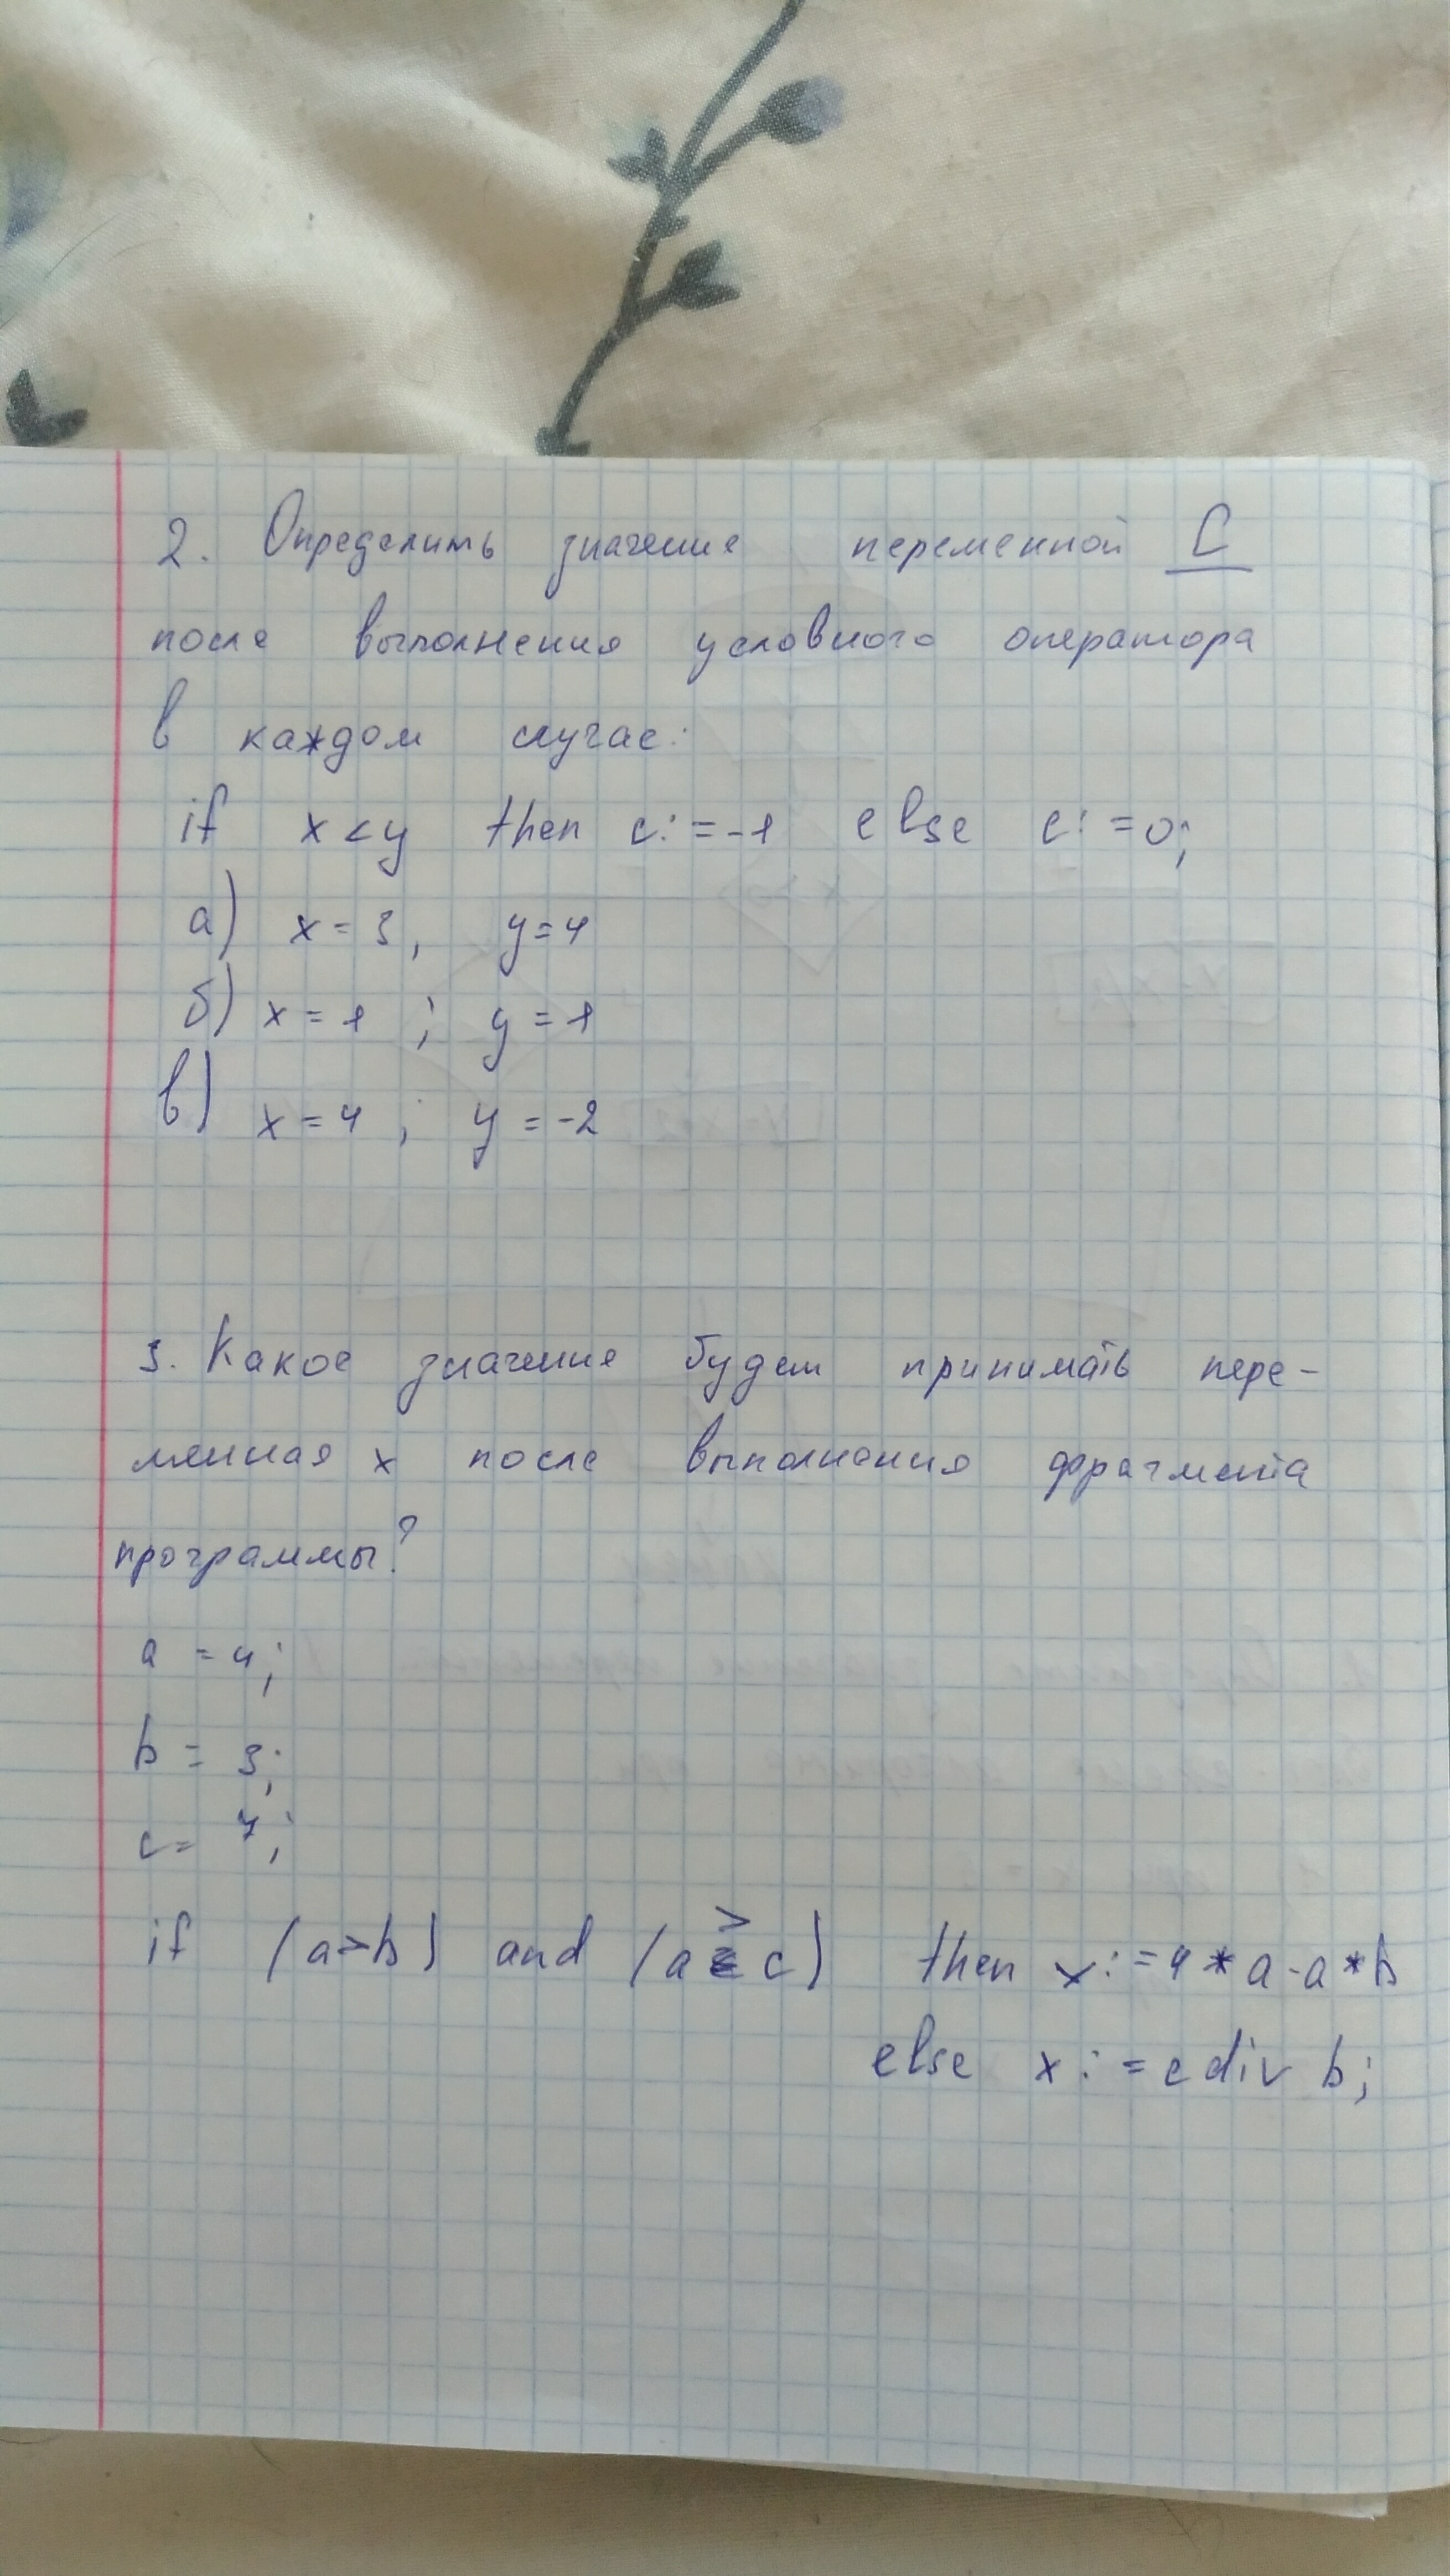 2. Определить значение переменной C
после выполнения условного оператора
в каждом случае:
if x<y then c:=-1 else c:=0;
а) x=3, y=4
б) x=1; y=1
в) x=4; y=-2
3. Какое значение будет принимать пере-
менная x после выполнения фрагмента
программы?
a=4;
b=3;
c=7;
if (a>b) and (a > c) then x:=4*a-a*b
else x:=c div b;